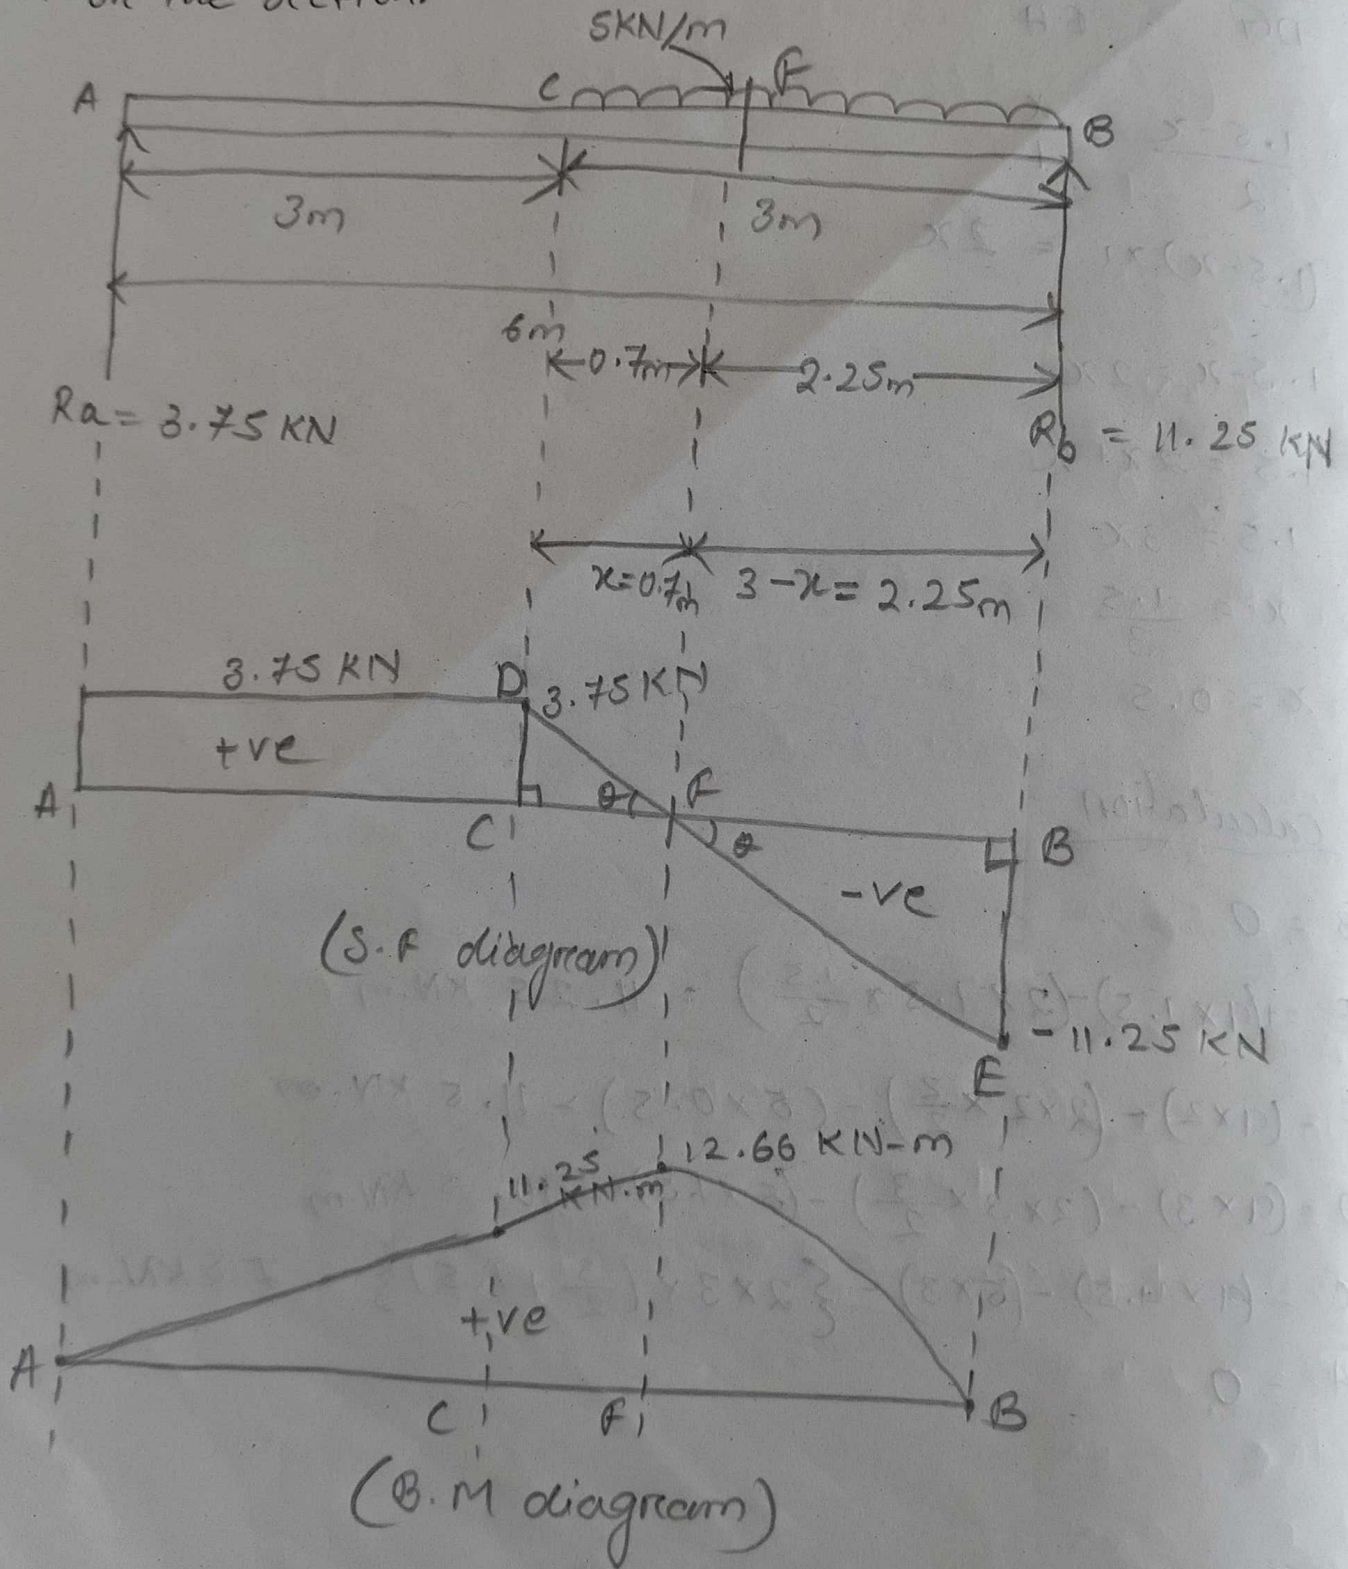 on the section.
5KN/m
A C F B
3m 3m
6m
0.7m 2.25m
Ra = 3.75 KN
Rb = 11.25 KN
x=0.7m 3-x= 2.25m
3.75 KN D 3.75 KN
+ve
A C θ F θ B
-ve
(S.F diagream)
-11.25 KN
E
11.25 KN.m 12.66 KN-m
+ve
A C F B
(B.M diagream)